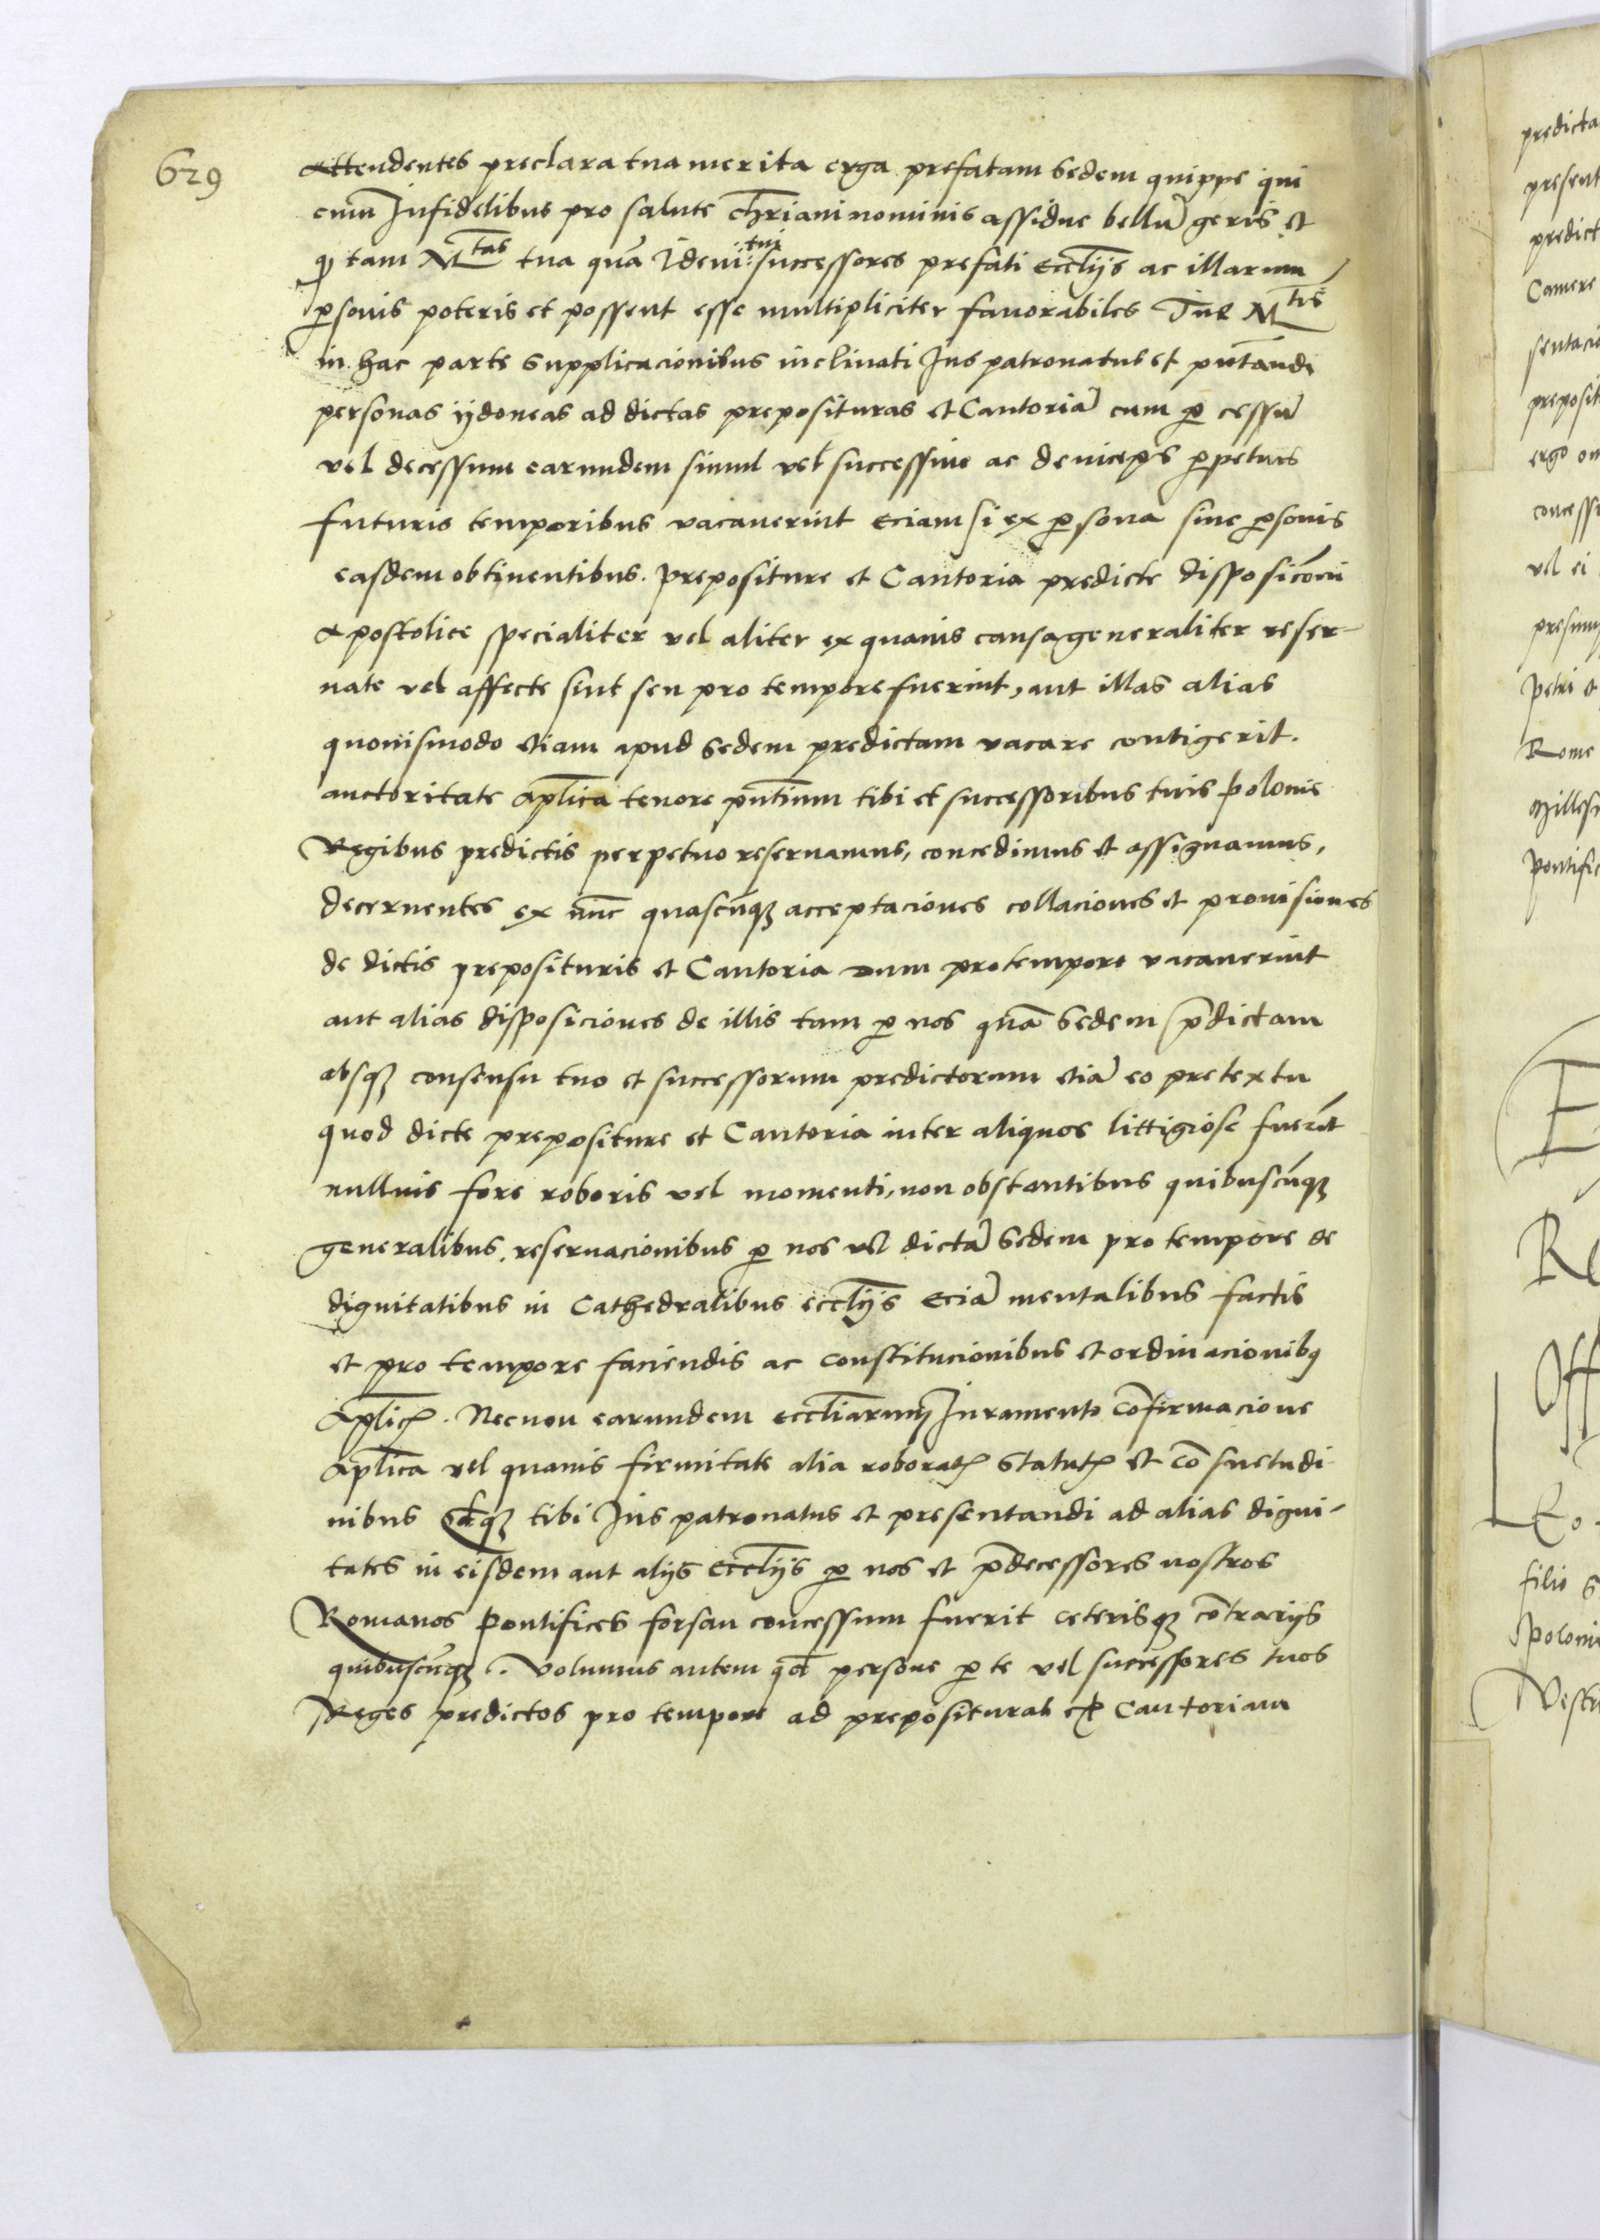 629
Attendentes preclara tua merita erga prefatam Sedem quippe qui
cum Infidelibus pro salute chr̄iani nominis assidue bellū geris et
q tam Mtas tua quā Idem tui successores prefati eccl̄ijs ac illarum
ꝑsonis poteris et possent esse multipliciter fauorabiles Tue Mtis
in hac parte Supplicacionibus inclinati Jus patronatus et pn̄tandi
personas ydoneas ad dictas preposituras et Cantoriā cum ꝑ cessū
vel decessum earundem simul vel successiue ac deinceps ꝑpetuis
futuris temporibus vacauerint eciam si ex ꝑsona siue ꝑsonis
easdem obtinentibus. prepositure et Cantoria predicte disposicōni
Apostolice specialiter vel aliter ex quauis causa generaliter reser-
uate vel affecte sint seu pro tempore fuerint, aut illas alias
quouismodo etiam apud Sedem predictam vacare contigerit.
auctoritate apl̄ica tenore pn̄tium tibi et successoribus tuis polonie
Regibus predictis perpetuo reseruamus, concedimus et assignamus,
decernentes ex nūc quascūqꝫ acceptaciones collaciones et prouisiones
de dictis preposituris et Cantoria dum pro tempore vacauerint
aut alias disposiciones de illis tam ꝑ nos quā Sedem p̄dictam
absqꝫ consensu tuo et successorum predictorum etiā eo pretextu
quod dicte prepositure et Cantoria inter aliquos littigiose fuerīt
nullius fore roboris vel momenti, non obstantibus quibuscūqꝫ
generalibus reseruacionibus ꝑ nos vel dictā Sedem pro tempore de
dignitatibus in Cathedralibus eccl̄ijs eciā mentalibus factis
et pro tempore faciendis ac constitucionibus et ordinacionibꝫ
Apl̄icꝭ. Necnon earundem eccl̄iarum Juramento cōfirmacione
apl̄ica vel quauis firmitate alia roboratꝭ Statutꝭ et cōsuetudi
nibus qd̄qꝫ tibi Jus patronatus et presentandi ad alias digni-
tates in eisdem aut alijs eccl̄ijs ꝑ nos et p̄decessores nostros
Romanos pontifices forsan concessum fuerit ceterisqꝫ cōtrarijs
quibuscūqꝫ. Volumus autem qd̄ persone ꝑ te vel successores tuos
Reges predictos pro tempore ad preposituras et Cantoriam
predicta
present
predict
Camere
sentacio
preposit
ergo om
concessi
vel ei
presum
petri et
Rome
Millesi
pontific
E
Re
Off
Leo
filio S
polonie
Vestr